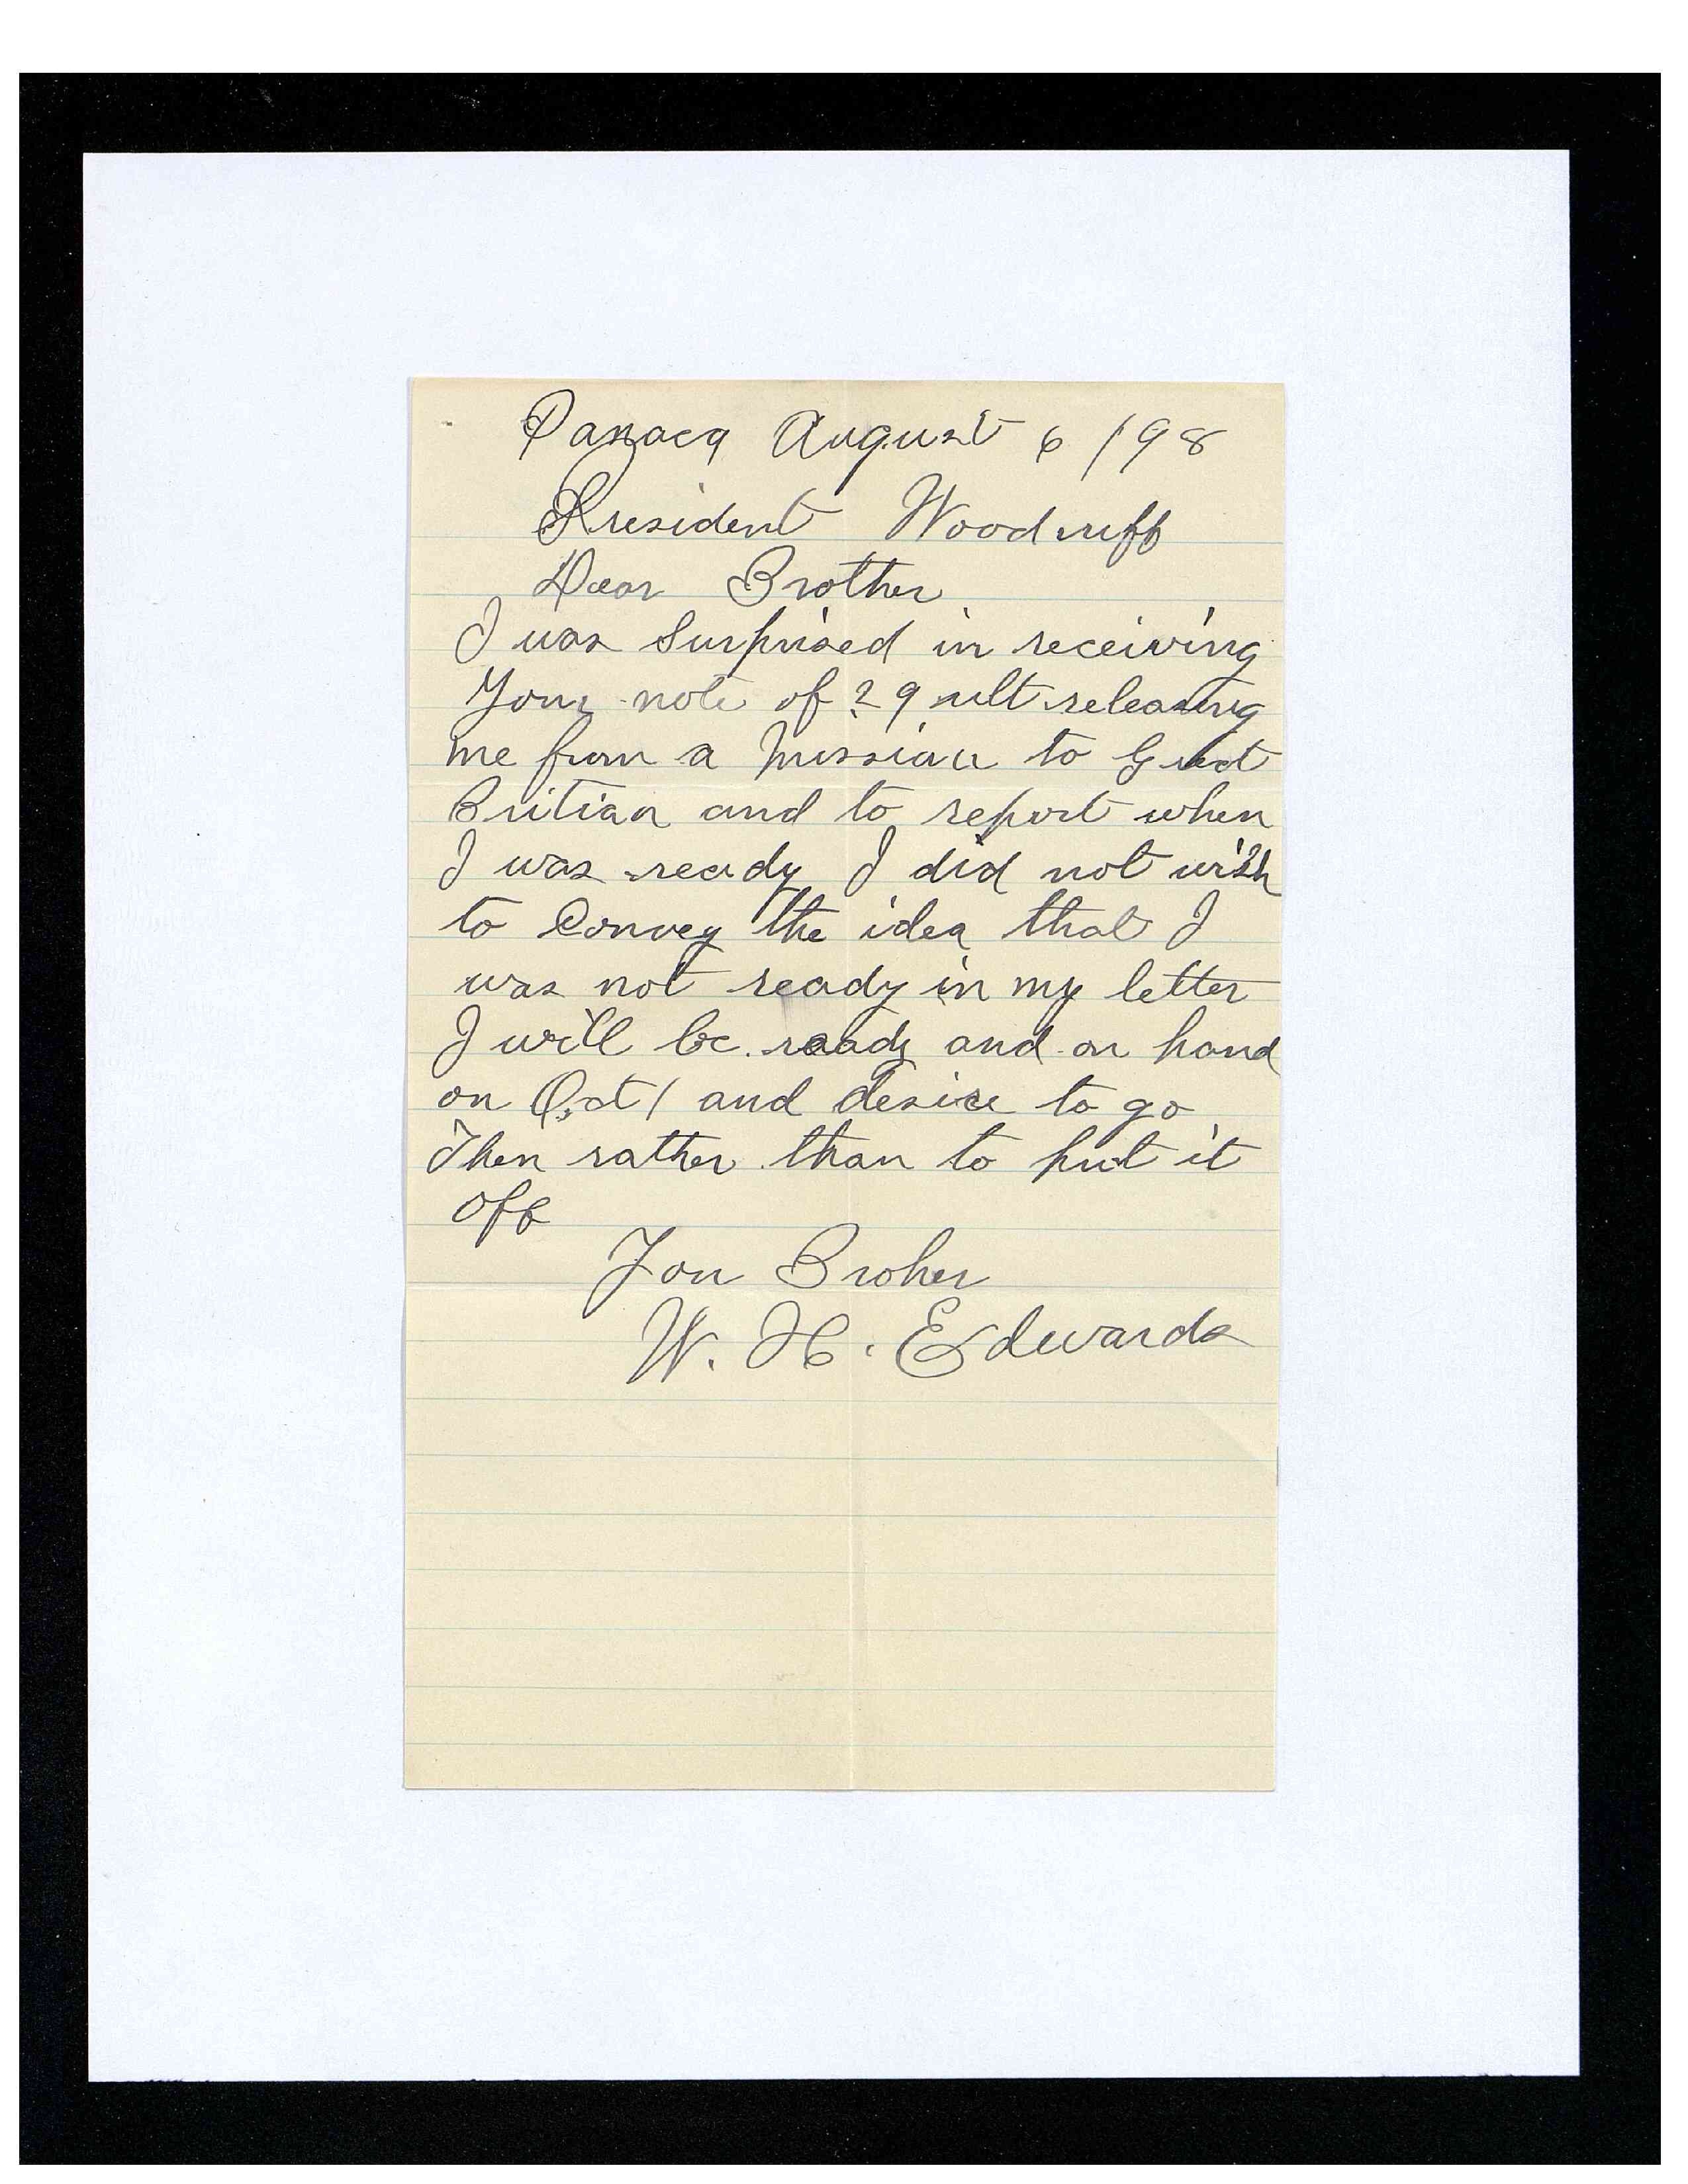 Panaca August 6 /98
President Woodruff
Dear Brother
I was Surprised in receiving
Your note of 29 ult releasing
me from a Mission to Great
Britian and to report when
I was ready I did not wish
to Convey the idea that I
was not ready in my letter
I will be ready and on hand
on Oct 1 and desire to go
Then rather than to put it
off
You Broher
W. H. Edwards